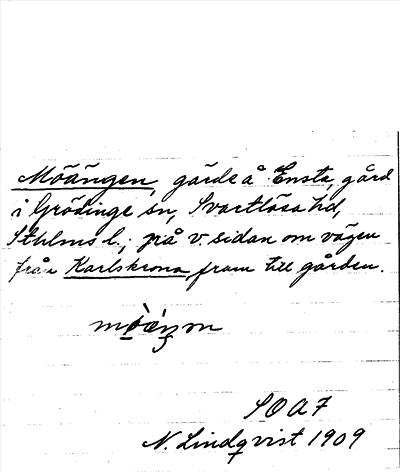 Möängen, gärde å Ensta, gård
i Grödinge sn, Svartlösa hd,
Sthlms l.; på v. sidan om vägen
från Karlskrona fram till gården.
SOAF
N. Lindqvist 1909